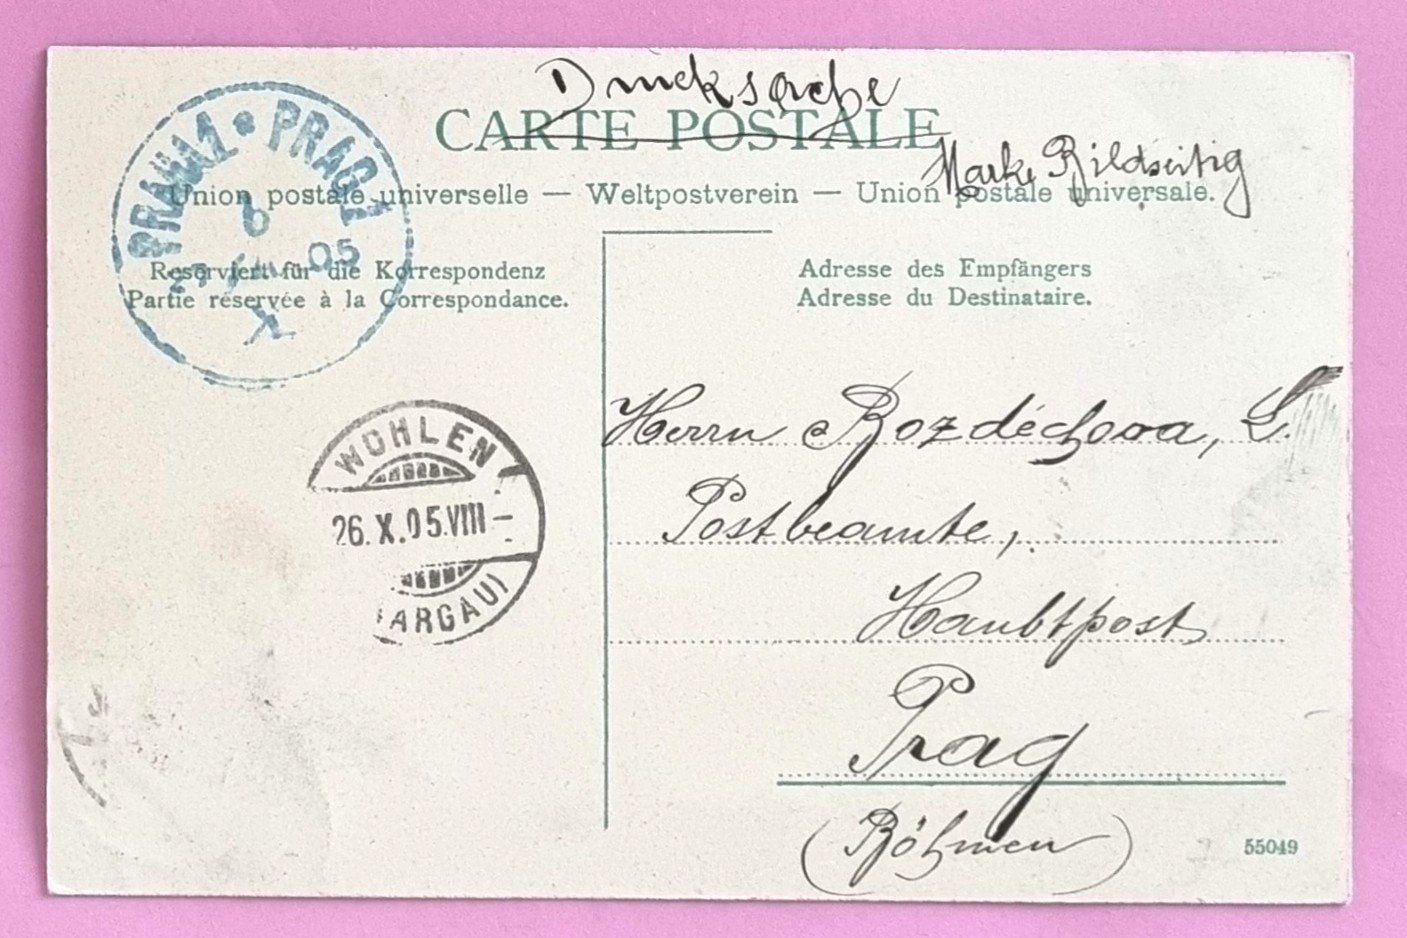 Drucksache
CARTE POSTALE
Marke Bildseitig
Union postale universelle — Weltpostverein — Union postale universale.
PRAHA 1 * PRAG 1
05
X
Reserviert für die Korrespondenz
Partie réservée à la Correspondance.
Adresse des Empfängers
Adresse du Destinataire.
WOHLEN
26.X.05.VIII–
(AARGAU)
Herrn Rozděchova, L.
Postbeamte,
Haubtpost
Prag
(Böhmen)
55049